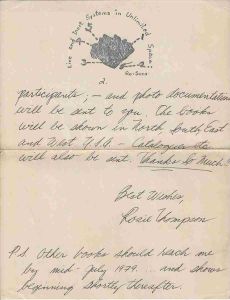 Live and Dust Systems in Unlimited Space
Re: Send
2.
participants; — and photo documentation
will be sent to you. The books
will be shown in North, South East
and West U.S. — Catalogue etc
will also be sent. Thanks So Much!!
Best Wishes,
Rosie Thompson
P.S. Other books should reach me
by mid-July 1979 ... and shows
beginning shortly thereafter.